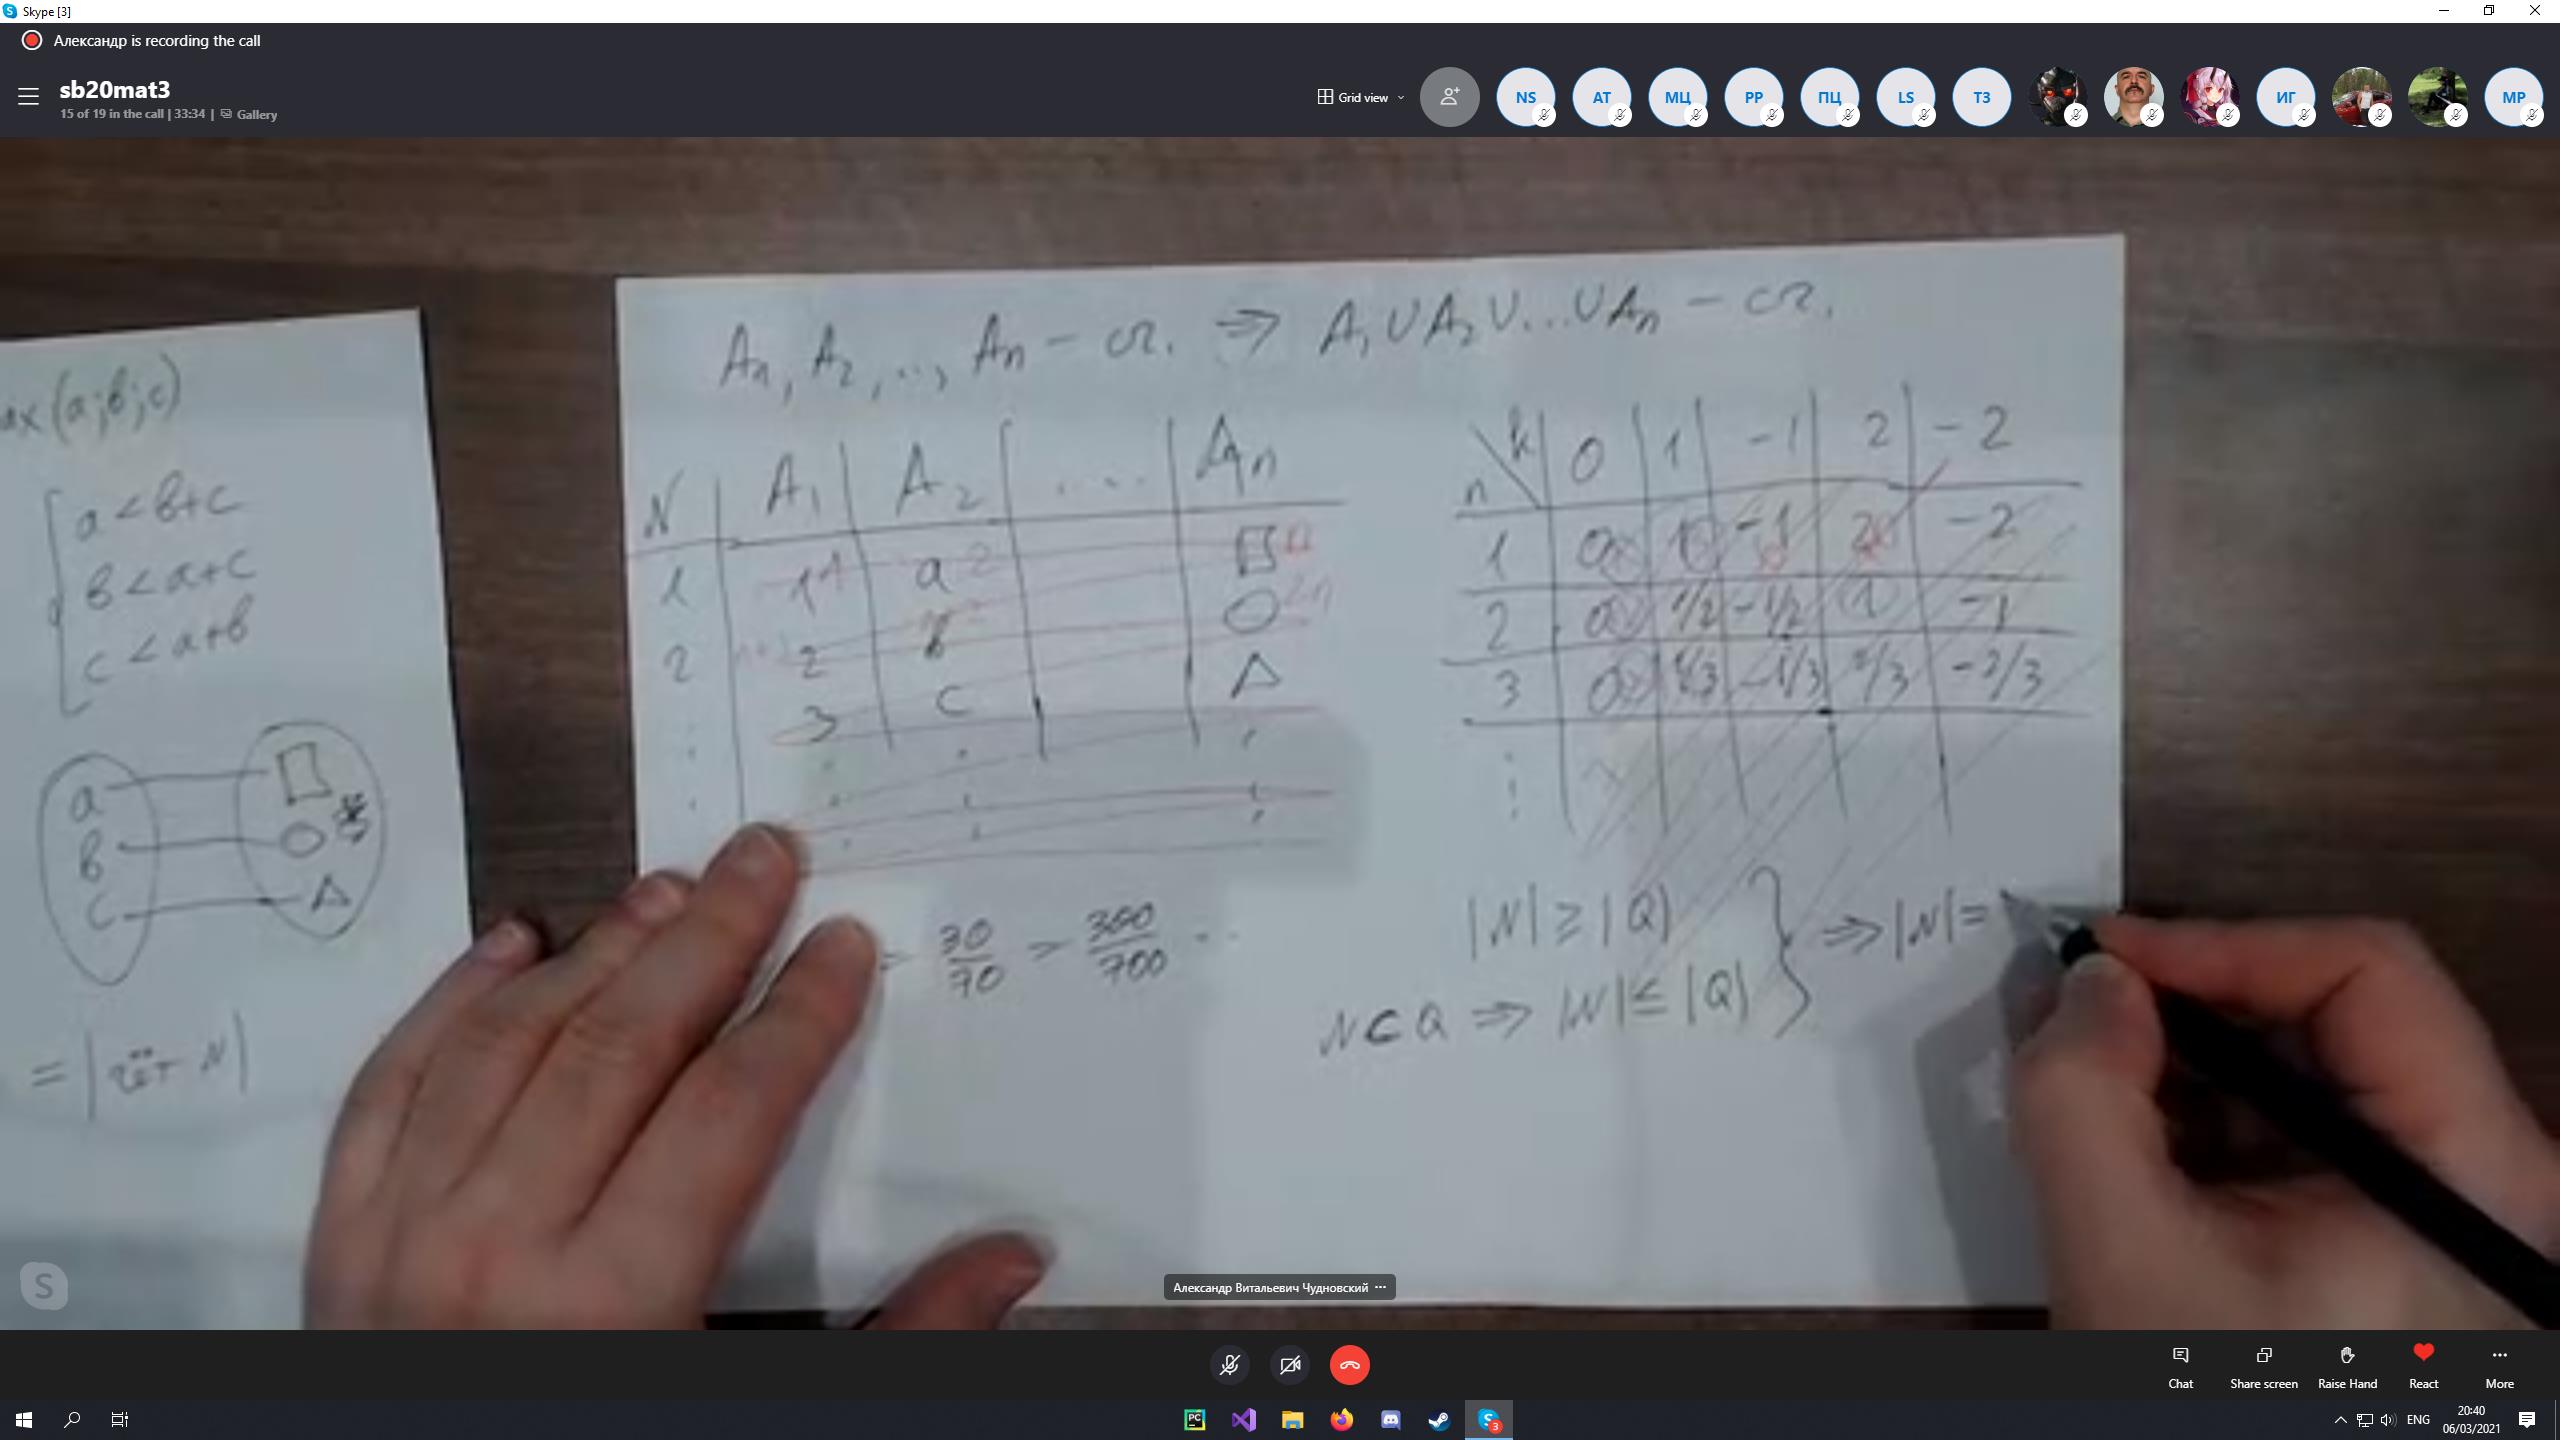 Skype [3]
Александр is recording the call
sb20mat3
15 of 19 in the call | 33:34 | Gallery
Grid view
NS AT МЦ PP ПЦ LS ТЗ ИГ MP
ax (a; b; c)
a < b+c
b < a+c
c < a+b
a
b
c
= | чёт N |
A₁, A₂, ..., Aₙ – сч. ⇒ A₁ ∪ A₂ ∪ ... ∪ Aₙ – сч.
N A₁ A₂ .... Aₙ
1 1 1 a 2 □ n
2 2 b ○ 2n
3 c △
= 30/70 = 300/700 ..
n \ k 0 1 -1 2 -2
1 0 1 -1 2 -2
2 0 1/2 -1/2 1 -1
3 0 1/3 -1/3 2/3 -2/3
|N| ≥ |Q|
N ⊂ Q ⇒ |N| ≤ |Q|
} ⇒ |N| =
Александр Витальевич Чудновский ...
S
Chat
Share screen
Raise Hand
React
More
PC
S 3
ENG
20:40
06/03/2021